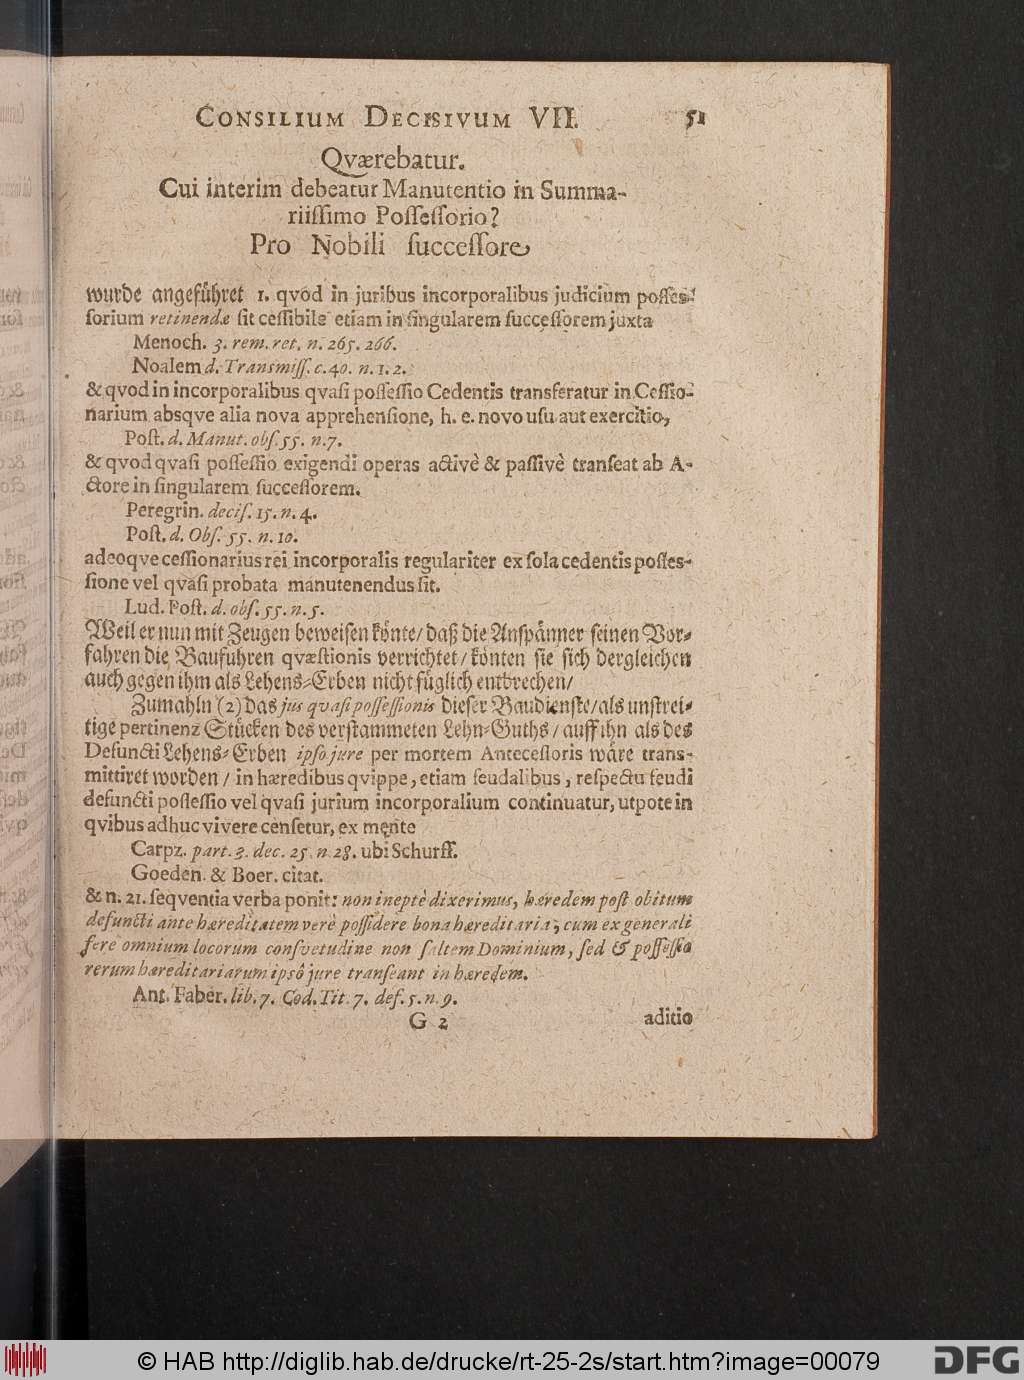 CONSILIUM DECISIVUM VII. 51
Qværebatur.
Cui interim debeatur Manutentio in Summa-
riiſſimo Poſſeſſorio?
Pro Nobili ſucceſſore
wurde angeführet 1. qvod in juribus incorporalibus judicium poſſeſ-
ſorium retinendæ ſit ceſſibile etiam in ſingularem ſucceſſorem juxta
Menoch. 3. rem. ret. n. 265. 266.
Noalem d. Transmiſſ. c. 40. n. 1. 2.
& qvod in incorporalibus qvaſi poſſeſſio Cedentis transferatur in Ceſſio-
narium absqve alia nova apprehenſione, h. e. novo uſu aut exercitio,
Poſt. d. Manut. obſ. 55. n. 7.
& qvod qvaſi poſſeſſio exigendi operas activè & paſſivè tranſeat ab A-
ctore in ſingularem ſucceſſorem.
Peregrin. deciſ. 15. n. 4.
Poſt. d. Obſ. 55. n. 10.
adeoqve ceſſionarius rei incorporalis regulariter ex ſola cedentis poſſeſ-
ſione vel qvaſi probata manutenendus ſit.
Lud. Poſt. d. obſ. 55. n. 5.
Weil er nun mit Zeugen beweiſen könte/ daß die Anſpänner ſeinen Vor-
fahren die Baufuhren qvæſtionis verrichtet/ könten ſie ſich dergleichen
auch gegen ihm als Lehens-Erben nicht füglich entbrechen/
Zumahln (2) das jus qvaſi poſſeſſionis dieſer Baudienſte/ als unſtrei-
tige pertinenz Stücken des verſtammeten Lehn-Guths/ auff ihn als des
Defuncti Lehens-Erben ipſo jure per mortem Anteceſſoris wäre trans-
mittiret worden/ in hæredibus qvippe, etiam feudalibus, reſpectu feudi
defuncti poſſeſſio vel qvaſi jurium incorporalium continuatur, utpote in
qvibus adhuc vivere cenſetur, ex mente
Carpz. part. 3. dec. 25. n. 28. ubi Schurff.
Goeden. & Boer. citat.
& n. 21. ſeqventia verba ponit: non ineptè dixerimus, hæredem poſt obitum
defuncti ante hæreditatem verè poſſidere bona hæreditaria; cum ex generali
fere omnium locorum conſvetudine non ſaltem Dominium, ſed & poſſeſſio
rerum hæreditariarum ipsô jure tranſeant in hæredem.
Ant. Faber. lib. 7. Cod. Tit. 7. def. 5. n. 9.
G 2 aditio
© HAB http://diglib.hab.de/drucke/rt-25-2s/start.htm?image=00079
DFG